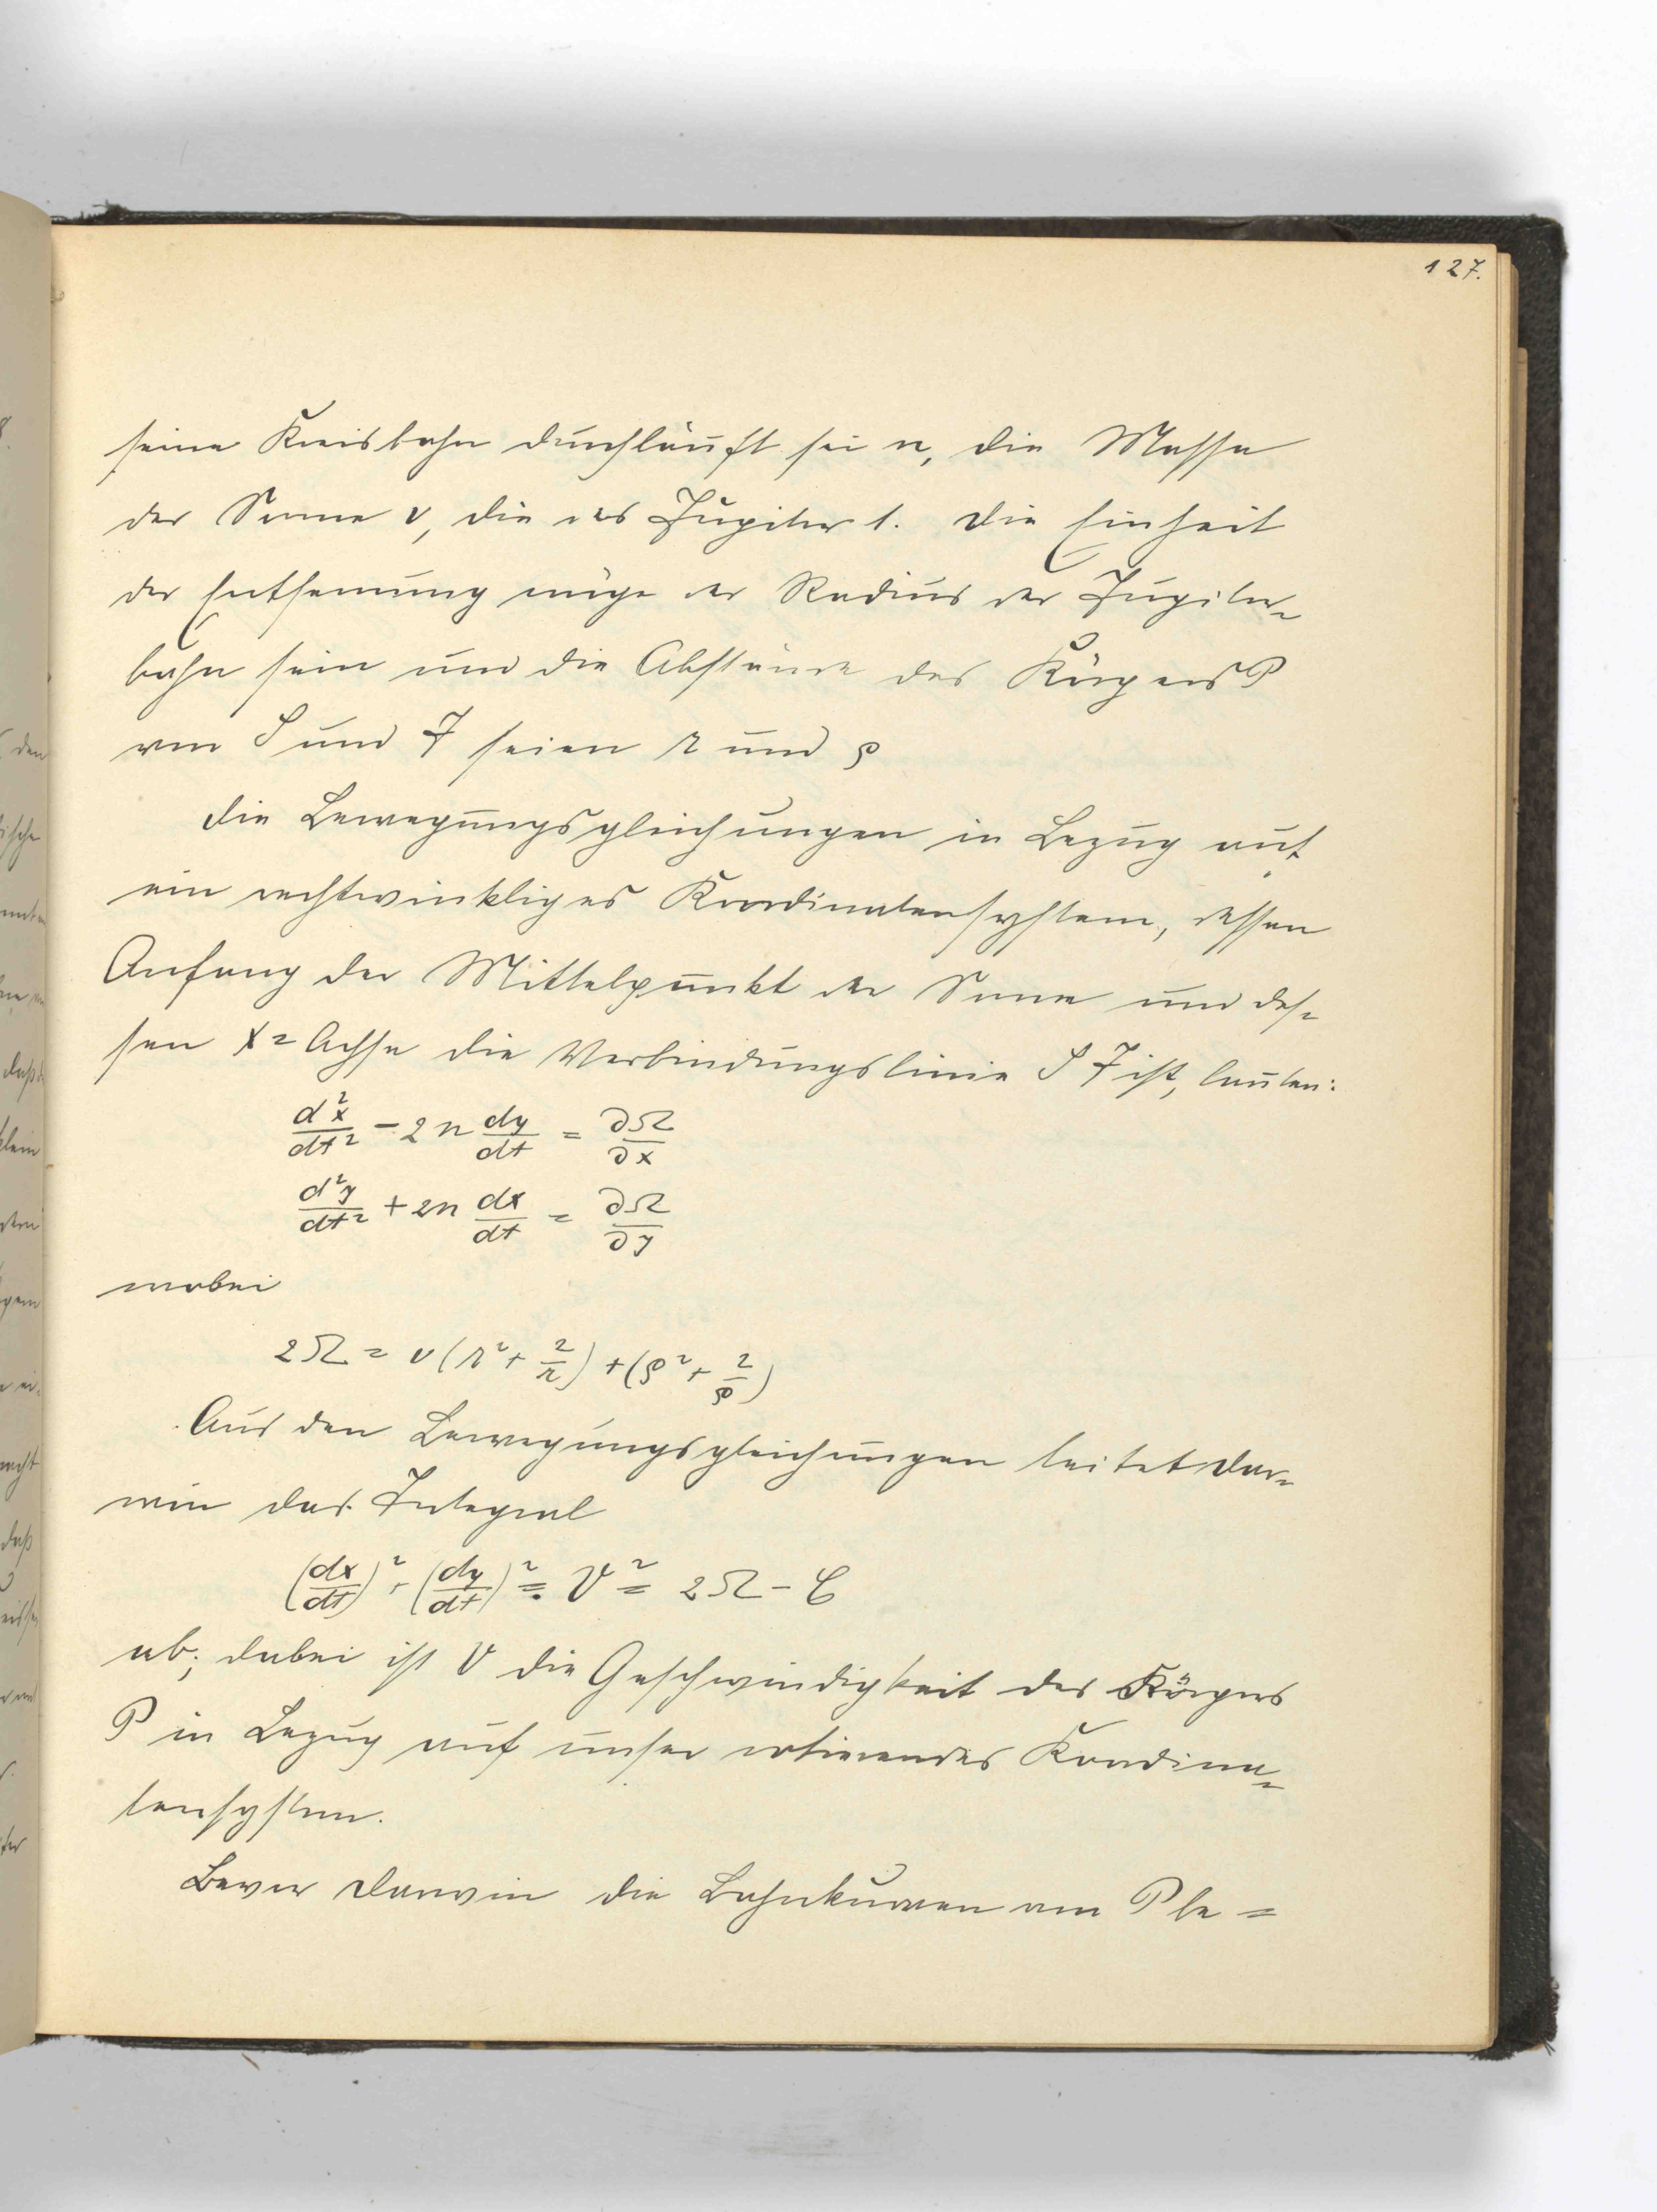 127.
seine Kreisbahn durchläuft sei n, die Masse
der Sonne ν, die des Jupiter 1. Die Einheit
der Entfernung möge der Radius der Jupiter-
bahn sein und die Abstände des Körpers P
von S und J seien r und ρ
Die Bewegungsgleichungen in Bezug auf
ein rechtwinkliges Koordinatensystem, dessen
Anfang der Mittelpunkt der Sonne und des-
sen X=Achse die Verbindungslinie S J ist, lauten:
d²x/dt² - 2n dy/dt = ∂Ω/∂x
d²y/dt² + 2n dx/dt = ∂Ω/∂y
wobei
2Ω = ν(r² + 2/r) + (ρ² + 2/ρ)
Aus den Bewegungsgleichungen leitet Dar-
win das Integral
(dx/dt)² + (dy/dt)² = V² = 2Ω - C
ab; dabei ist V die Geschwindigkeit des Körpers
P in Bezug auf unser rotierendes Koordina-
tensystem.
Bevor Darwin die Bahnkurven von P be=